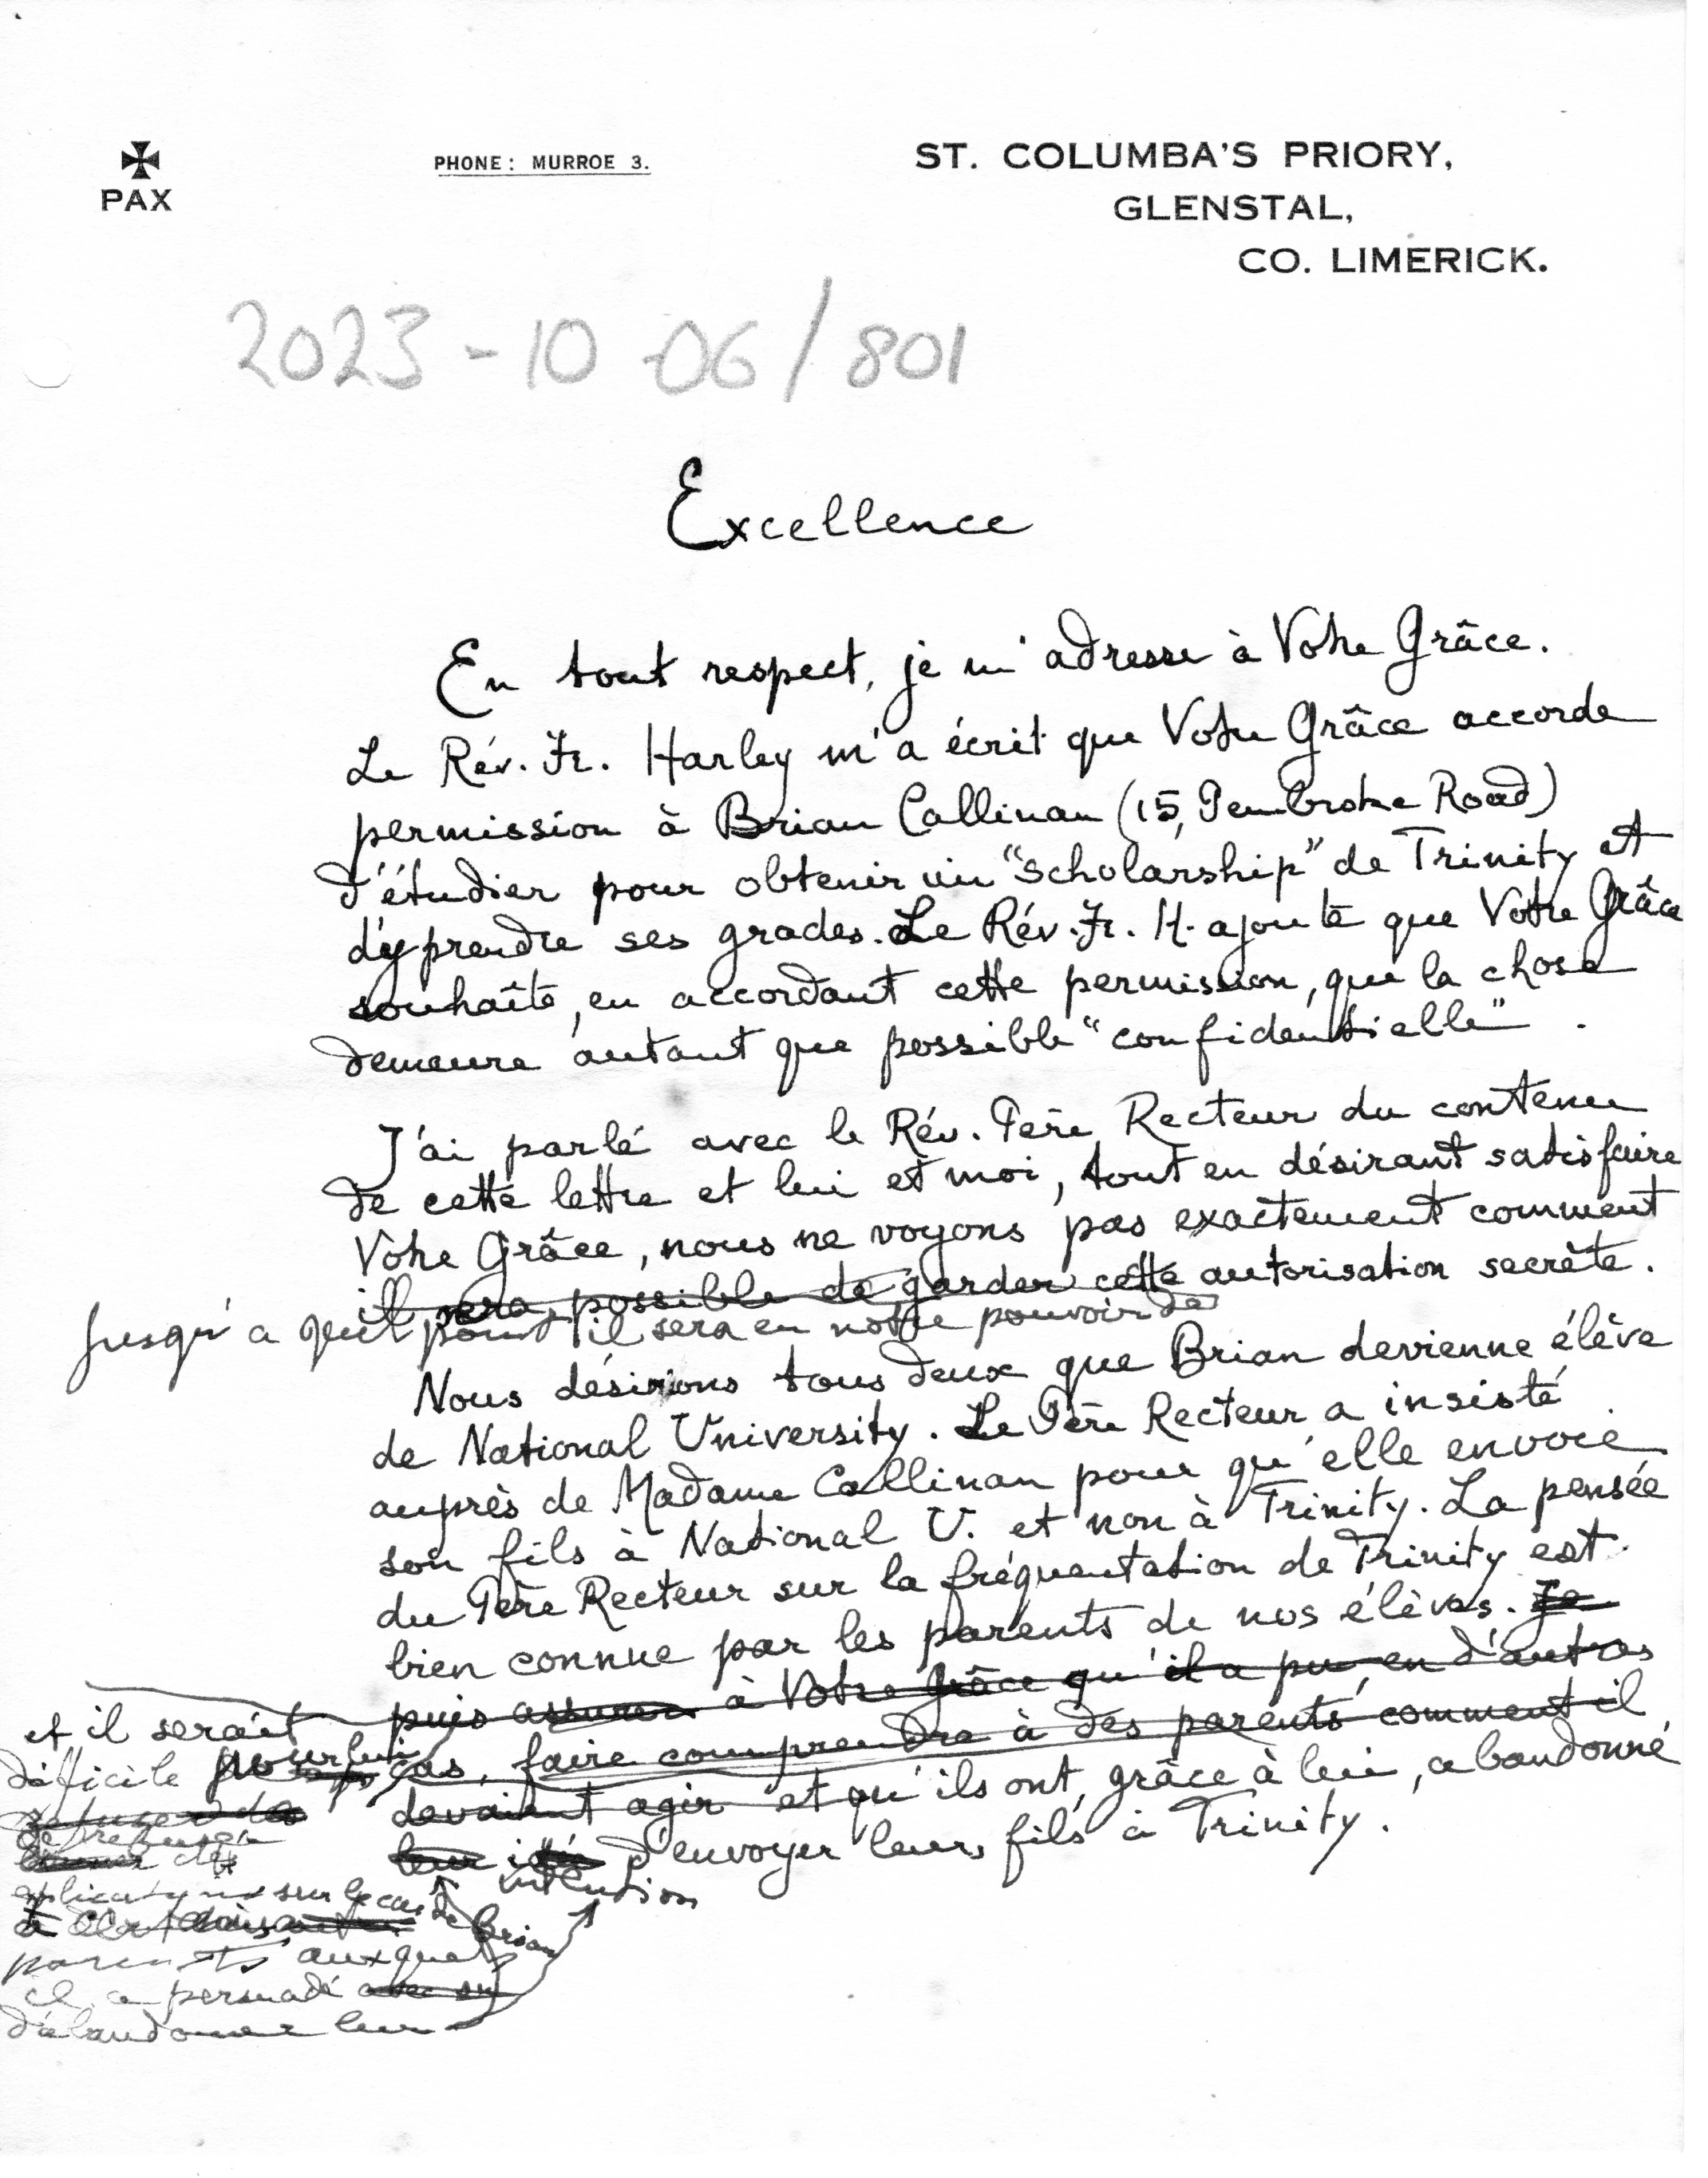 PAX
PHONE: MURROE 3.
ST. COLUMBA'S PRIORY,
GLENSTAL,
CO. LIMERICK.
2023-10-06/801
Excellence
En tout respect, je m'adresse à Votre Grâce.
Le Rév. Fr. Harley m'a écrit que Votre Grâce accorde
permission à Brian Callinan (15, Pembroke Road)
d'étudier pour obtenir un "scholarship" de Trinity et
d'y prendre ses grades. Le Rév. Fr. H. ajoute que Votre Grâce
souhaite, en accordant cette permission, que la chose
demeure autant que possible "confidentielle".
J'ai parlé avec le Rév. Père Recteur du contenu
de cette lettre et lui et moi, tout en désirant satisfaire
Votre Grâce, nous ne voyons pas exactement comment
il sera possible de garder cette autorisation secrète.
jusqu'a quel point il sera en notre pouvoir de
Nous désirions tous deux que Brian devienne élève
de National University. Le Père Recteur a insisté
auprès de Madame Callinan pour qu'elle envoie
son fils à National U. et non à Trinity. La pensée
du Père Recteur sur la fréquentation de Trinity est
bien connue par les parents de nos élèves. Je
puis assurer à Votre Grâce qu'il a pu, en d'autres
cas, faire comprendre à des parents comment il
devaient agir et qu'ils ont, grâce à lui, abandonné
leur idée d'envoyer leurs fils à Trinity.
intention
et il serait
difficile pour lui
refuser des
de refuser
donner des
explications sur le cas de Brian
à
parents auxquels
il a persuadé avec
d'abandonner leur